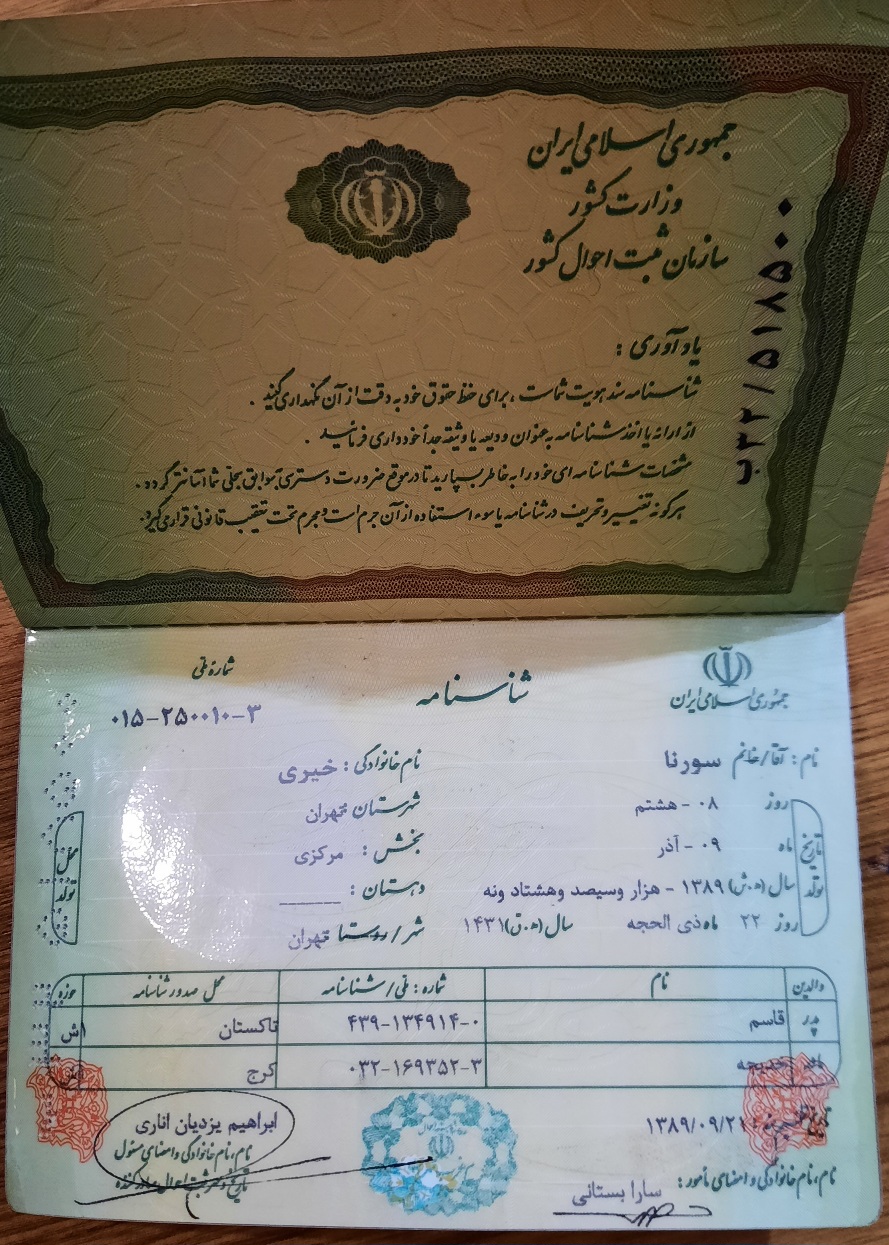 جمهوری اسلامی ایران
وزارت کشور
سازمان ثبت احوال کشور
ب۳۲/۵۱۸۵۰۰
یادآوری :
شناسنامه سند هویت شماست ، برای حفظ حقوق خود به دقت از آن نگهداری کنید .
از ارائه یا اخذ شناسنامه به عنوان ودیعه یا وثیقه جداً خودداری فرمائید .
مشخصات شناسنامه ای خود را به خاطر بسپارید تا در موقع ضرورت دسترسی به سوابق سجلی شما آسانتر گردد .
هرگونه تغییر و تحریف در شناسنامه یا سوء استفاده از آن جرم است و مجرم تحت تعقیب قانونی قرار می گیرد .
جمهوری اسلامی ایران
شناسنامه
شماره ملی
۰۱۵-۲۵۰۰۱۰-۳
نام : آقا/خانم سورنا
نام خانوادگی : خیری
تاریخ تولد
روز ۰۸ - هشتم
شهرستان تهران
ماه ۰۹ - آذر
بخش : مرکزی
سال (ه.ش) ۱۳۸۹ - هزار وسیصد وهشتاد ونه
دهستان :
روز ۲۲ ماه ذی الحجه سال (ه.ق) ۱۴۳۱
شهر/روستا تهران
محل تولد
والدین نام شماره : ملی/شناسنامه محل صدور شناسنامه حوزه
پدر قاسم ۴۳۹-۱۳۴۹۱۴-۰ تاکستان اش
مادر خدیجه ۰۳۲-۱۶۹۳۵۲-۳ کرج
تاریخ تنظیم : ۱۳۸۹/۰۹/۲۱
ابراهیم یزدیان اناری
نام، نام خانوادگی و امضای مسئول
نام، نام خانوادگی و امضای مأمور : سارا بستانی